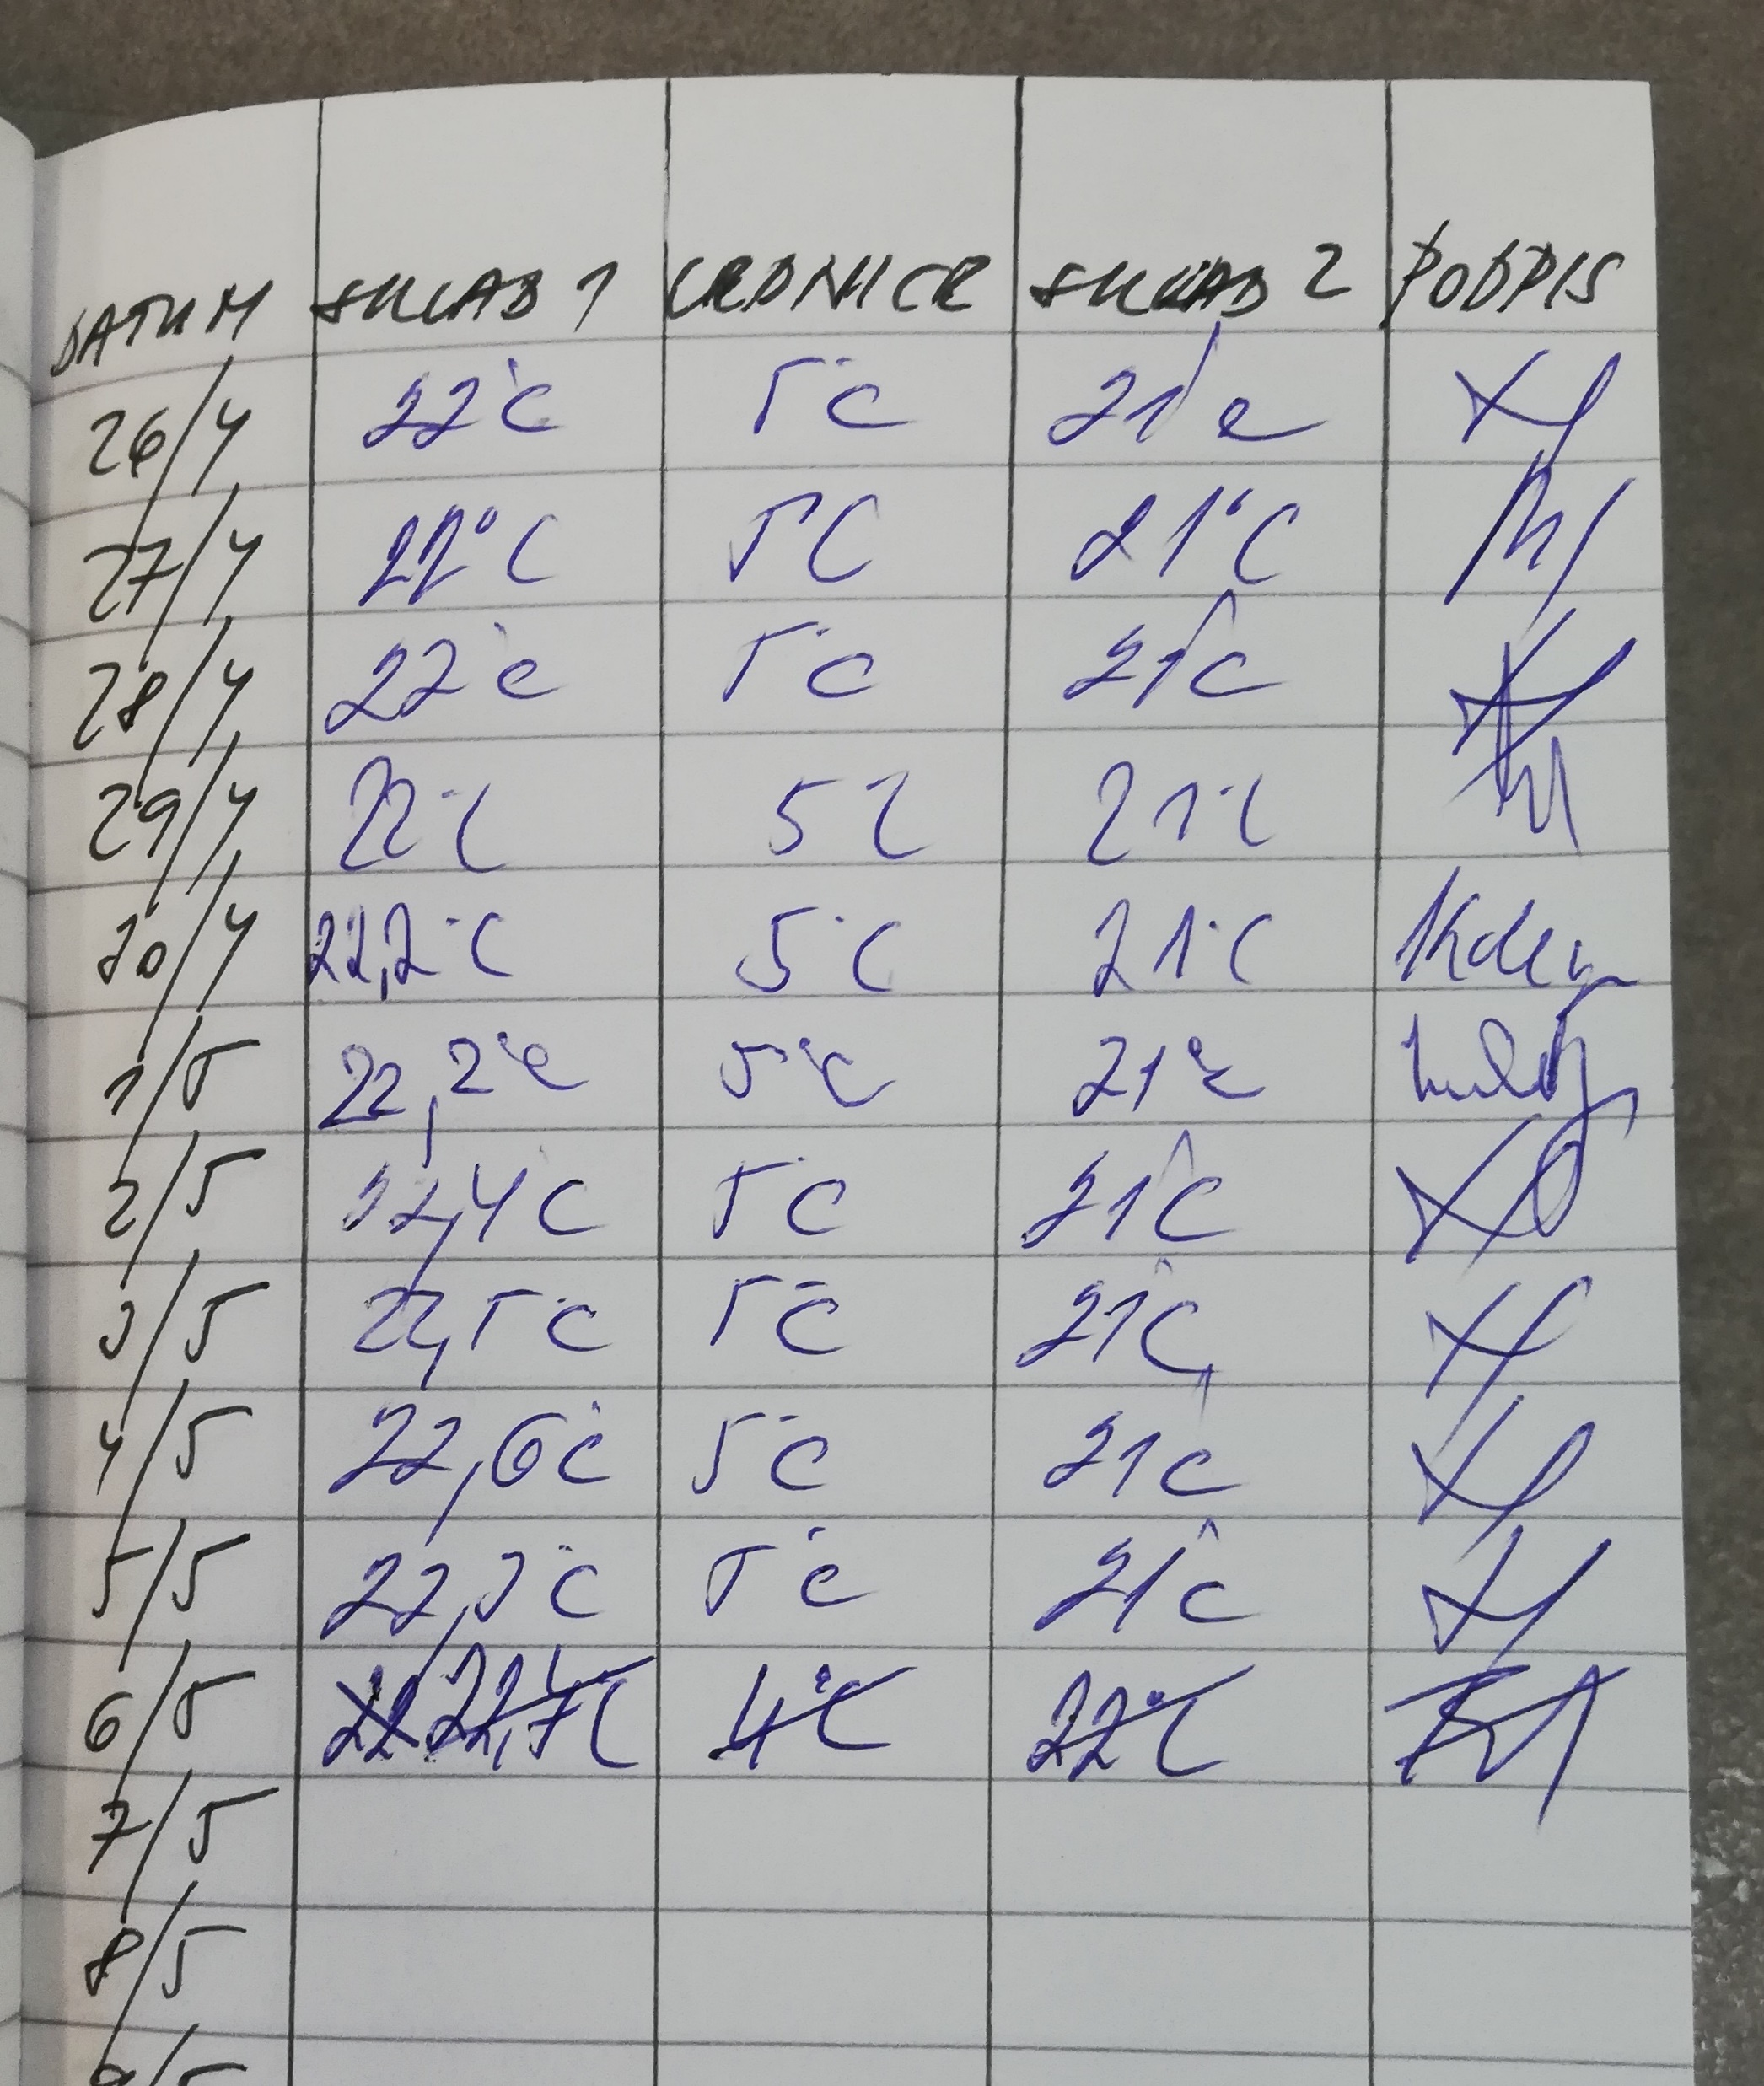 DATUM SKLAD 1 LEDNICE SKLAD 2 PODPIS
26/4 22°C 5°C 21°C
27/4 22°C 5°C 21°C
28/4 22°C 5°C 21°C
29/4 22°C 5°C 21°C
30/4 22,2°C 5°C 21°C
1/5 22,2°C 5°C 21°C
2/5 22,4°C 5°C 21°C
3/5 22,5°C 5°C 21°C
4/5 22,6°C 5°C 21°C
5/5 22,3°C 5°C 21°C
6/5 4°C 22°C
7/5
8/5
9/5